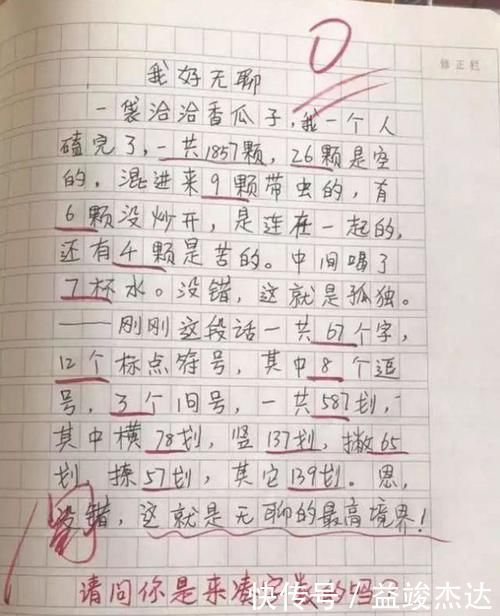 0
修正栏
我好无聊
一袋洽洽香瓜子,我一个人
磕完了,一共1857颗,26颗是空
的,混进来9颗带虫的,有
6颗没炒开,是连在一起的,
还有4颗是苦的。中间喝了
7杯水。没错,这就是孤独。
——刚刚这段话一共67个字,
12个标点符号,其中8个逗
号,3个句号,一共587划,
其中横78划,竖137划,撇65
划,捺57划,其它139划。恩,
没错,这就是无聊的最高境界!
阅
请问你是来凑字数的吗?
快传号/益竣杰达